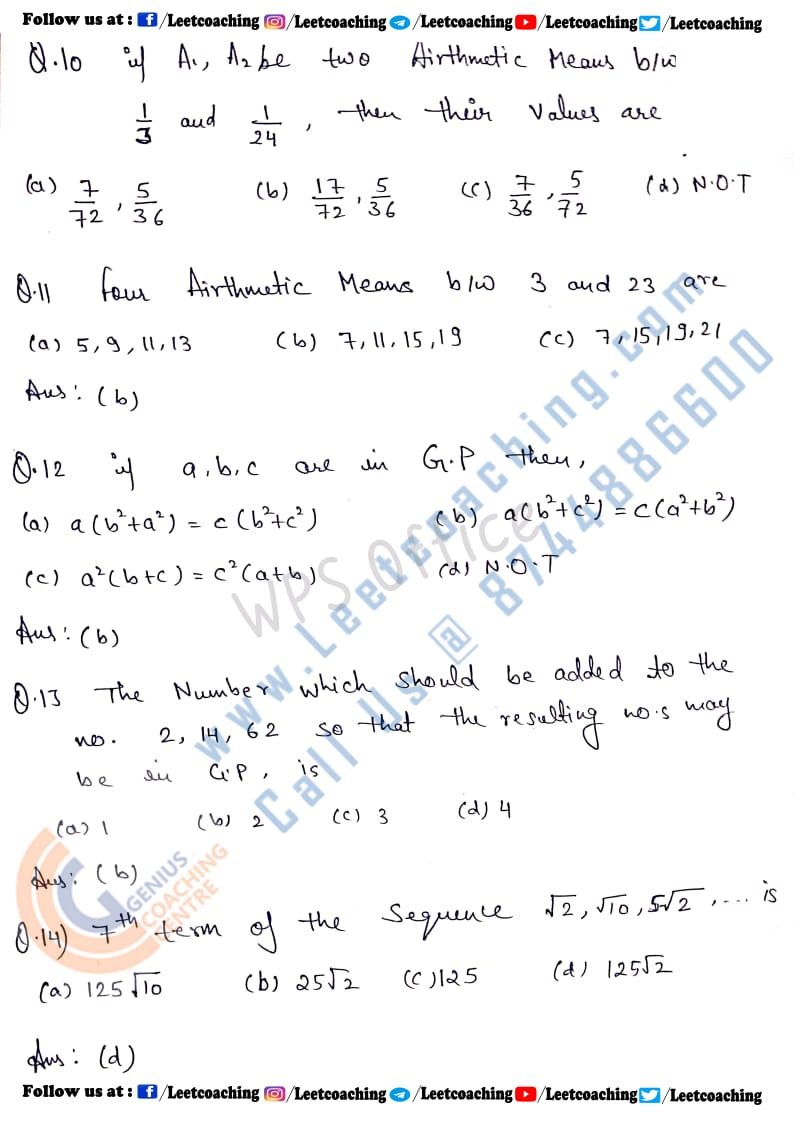 Follow us at : /Leetcoaching /Leetcoaching /Leetcoaching /Leetcoaching /Leetcoaching
Q.10 if A₁, A₂ be two Airthmetic Means b/w
1/3 and 1/24, then their values are
(a) 7/72, 5/36 (b) 17/72, 5/36 (c) 7/36, 5/72 (d) N.O.T
Q.11 four Airthmetic Means b/w 3 and 23 are
(a) 5, 9, 11, 13 (b) 7, 11, 15, 19 (c) 7, 15, 19, 21
Ans: (b)
Q.12 if a, b, c are in G.P then,
(a) a(b²+a²) = c(b²+c²) (b) a(b²+c²) = c(a²+b²)
(c) a²(b+c) = c²(a+b) (d) N.O.T
Ans: (b)
Q.13 The Number which should be added to the
no. 2, 14, 62 so that the resulting no.s may
be in G.P, is
(a) 1 (b) 2 (c) 3 (d) 4
Ans: (b)
Q.14) 7th term of the Sequence √2, √10, 5√2, .... is
(a) 125√10 (b) 25√2 (c) 125 (d) 125√2
Ans: (d)
www.Leetcoaching.com
Call Us @ 8744886600
WPS Office
GENIUS
COACHING
CENTRE
Follow us at : /Leetcoaching /Leetcoaching /Leetcoaching /Leetcoaching /Leetcoaching